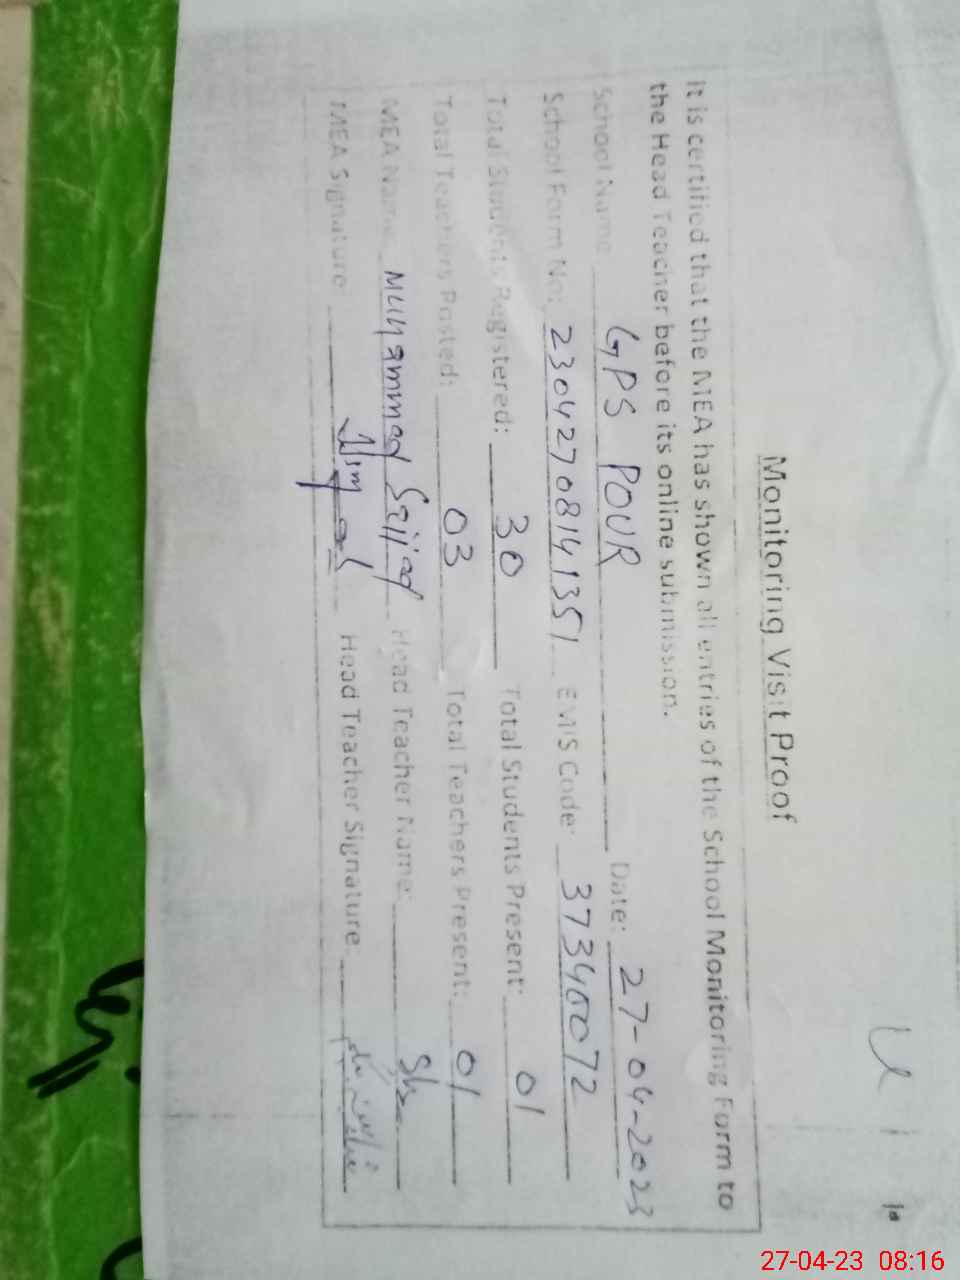 Monitoring Visit Proof
It is certified that the MEA has shown all entries of the School Monitoring Form to
the Head Teacher before its online submission.
School Name GPS POUR Date: 27-04-2023
School Form No: 23042708141351 EMIS Code: 37340072
Total Students Registered: 30 Total Students Present: 01
Total Teachers Posted: 03 Total Teachers Present: 01
MEA Name Muhammad Sajjad Head Teacher Name:
MEA Signature: Head Teacher Signature:
27-04-23 08:16